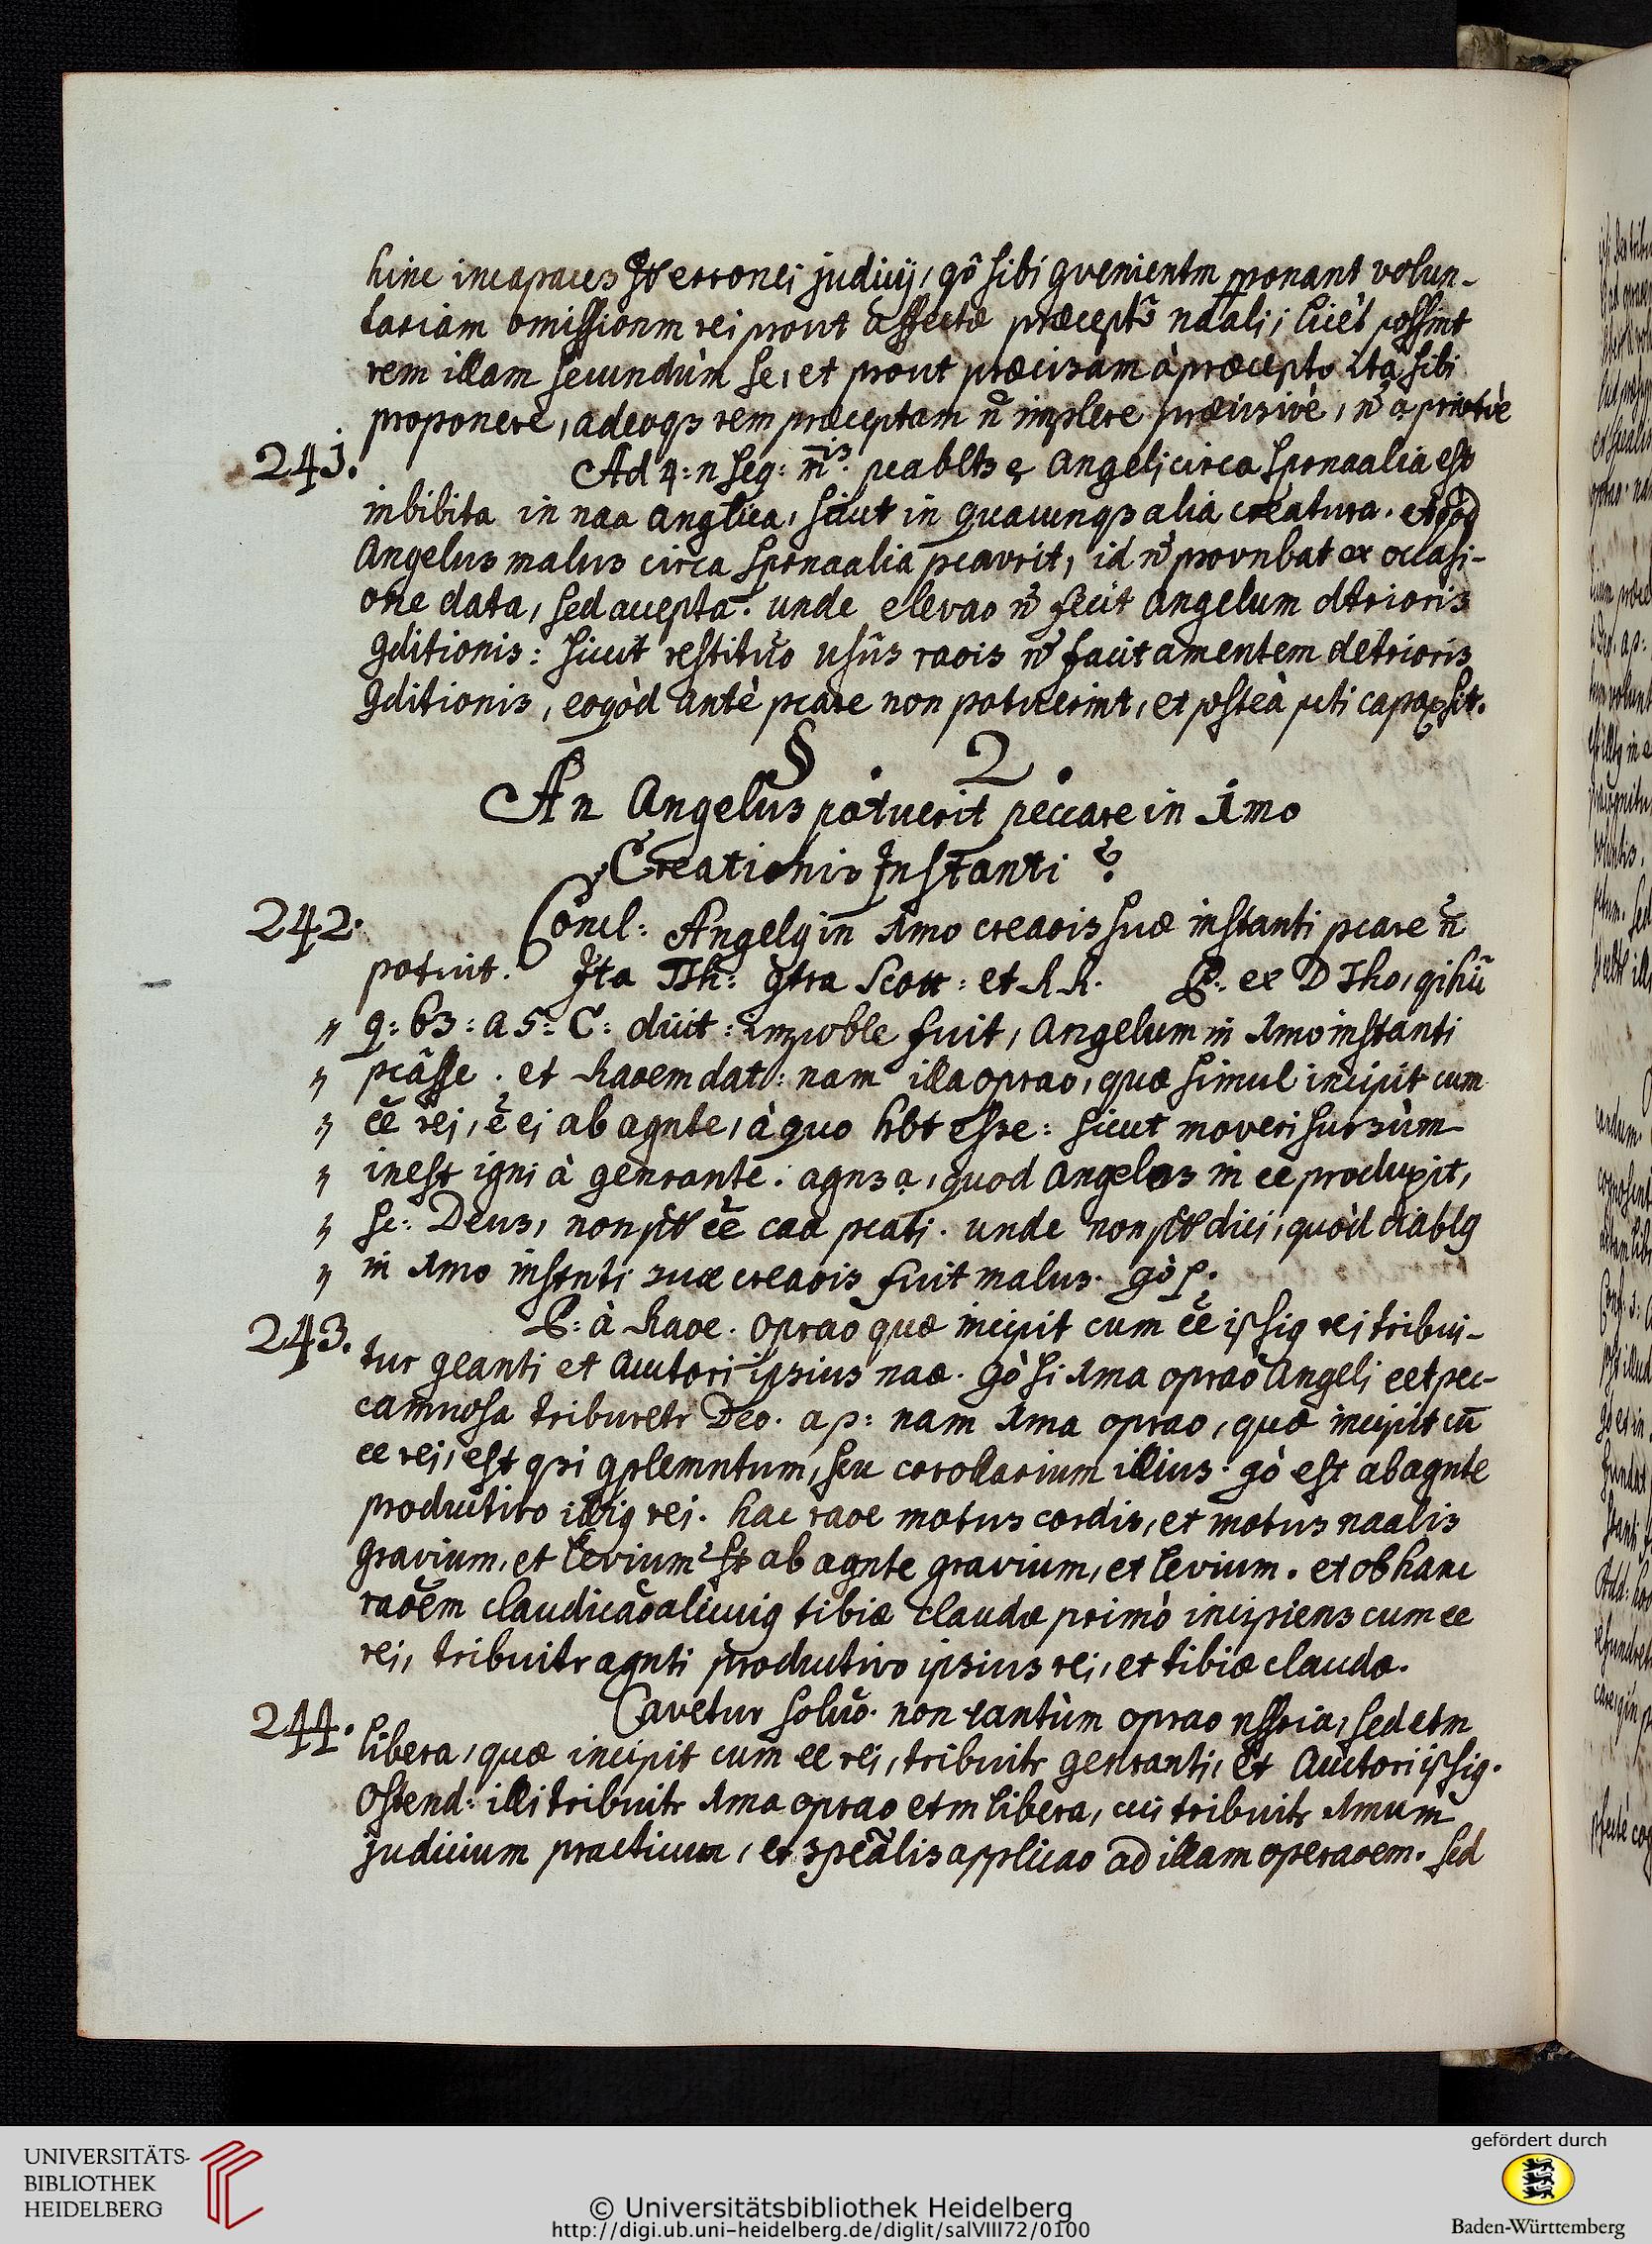 hinc incapaces st erronei judicij, qô sibi gvenientm pponant volun-
tariam omissionm rei prout affectæ præceptô naali; licèt possint
rem illam secundùm se, et prout præcisam à præcepto ita sibi
proponere, adeoqз rem præceptam n̄ implere præcisivè, n̄
241. Ad 4: n seq: peabltз angeli circa sprnaalia est
inbibita in naa anglica, sicut in quacunqз alia creatura. et qòd
Angelus malus circa sprnaalia peavrit, id n̄ provnbat ex occasi-
one data, sed accepta. unde elevao n̄ fecit angelum dtrioris
gditionis: sicut restituo usûs raois n̄ facit amentem detrioris
gditionis, eo qòd antè pcare non potuerint, et posteà pcti capax sit.
§. 2.
An Angelus potuerit peccare in 1mo
Creationis Instanti?
242. Concl: Angelq in 1mo creaois suæ instanti pcare n̄
potuit. Ita Th: gtra Scott: et RR. P: ex D Tho, qihū
" q: 63: a 5: C: dicit: impoble fuit, angelum in 1mo instanti
" pcâsse. et Raoem dat: nam illa oprao, quæ simul incipit cum
" ēe rei, ē ei ab agnte, à quo hbt esse: sicut moveri sursùm
" inest igni à genrante. agns a, quod angelos in ee produxit,
" sc: Deus, non pt ēe caa pcati. unde non pt dici, quòd diablq
" in 1mo instnti suæ creaois fuit malus. gò p.
243. P: à Raoe. oprao quæ incipit cum ēe ipsiq rei tribui-
tur geanti et Auctori ipsius naæ. gò si 1ma oprao Angeli eet pec-
caminosa triburetr Deo. a p: nam 1ma oprao, quæ incipit cū
ee rei, est qsi gplemntum, seu corollarium illius. gò est ab agnte
productivo illiq rei. hac raoe motus cordis, et motus naalis
gravium, et levium st ab agnte gravium, et levium. et ob hanc
raoēm claudicao alicuiq tibiæ claudæ primò incipiens cum ee
rei, tribuitr agnti productivo ipsius rei, et tibiæ claudæ.
244. Cavetur soluo. non tantùm oprao nssria, sed etm
libera, quæ incipit cum ee rei, tribuitr genranti, et Auctori ipsiq.
Ostend: illi tribuitr 1ma oprao etm libera, cui tribuitr 1mum
judicium practicum, et speālis applicao ad illam operaoem. sed
UNIVERSITÄTS-
BIBLIOTHEK
HEIDELBERG
© Universitätsbibliothek Heidelberg
http://digi.ub.uni-heidelberg.de/diglit/salVIII72/0100
gefördert durch
Baden-Württemberg